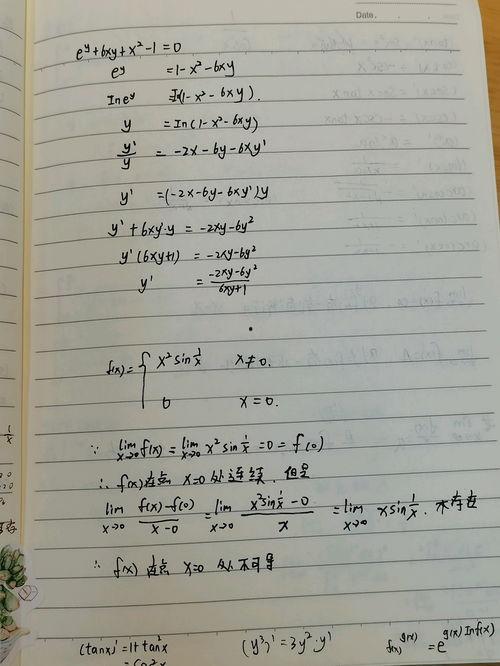 Date.
e^y+6xy+x²-1=0
e^y =1-x²-6xy
Ine^y In(1-x²-6xy).
y =In(1-x²-6xy)
y'/y = -2x-6y-6xy'
y' =(-2x-6y-6xy')y
y'+6xy'·y = -2xy-6y²
y'(6xy+1) = -2xy-6y²
y' = (-2xy-6y²)/(6xy+1)
f(x)= { x²sin 1/x x≠0.
0 x=0.
∵ lim x→0 f(x)= lim x→0 x²sin 1/x =0=f(0)
∴ f(x)在点 x=0 处连续.但是
lim x→0 (f(x)-f(0))/(x-0) = lim x→0 (x²sin 1/x -0)/x = lim x→0 xsin 1/x. 不存在
∴ f(x)在点 x=0 处不可导
(tanx)'=1+tan²x (y³)'=3y²·y' f(x)^g(x) = e^g(x)Inf(x)